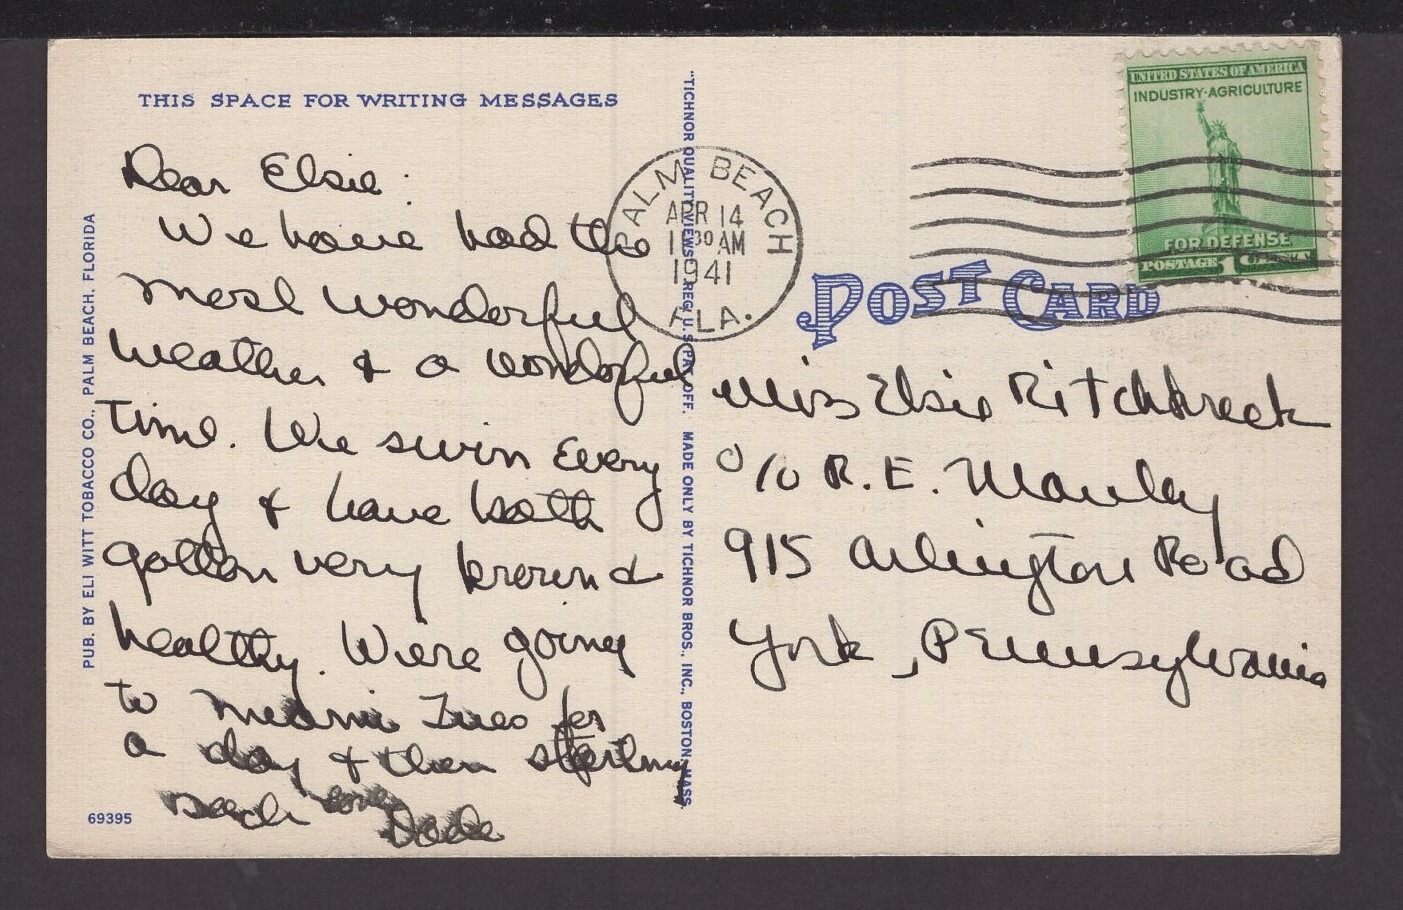 THIS SPACE FOR WRITING MESSAGES
Dear Elsie:
We have had the
most wonderful
weather & a wonderful
time. We swim every
day & have both
gotten very brown &
healthy. We're going
to Miami Tues for
a day & then starting
back love
PUB. BY ELI WITT TOBACCO CO., PALM BEACH, FLORIDA
69395
"TICHNOR QUALITY VIEWS," REG. U. S. PAT. OFF. MADE ONLY BY TICHNOR BROS., INC., BOSTON, MASS.
PALM BEACH
APR 14
30 AM
1941
FLA.
UNITED STATES OF AMERICA
INDUSTRY·AGRICULTURE
FOR DEFENSE
POSTAGE 1 CENT
POST CARD
Miss Elsie
c/o R. E. Manley
915 Arlington Road
York, Pennsylvania